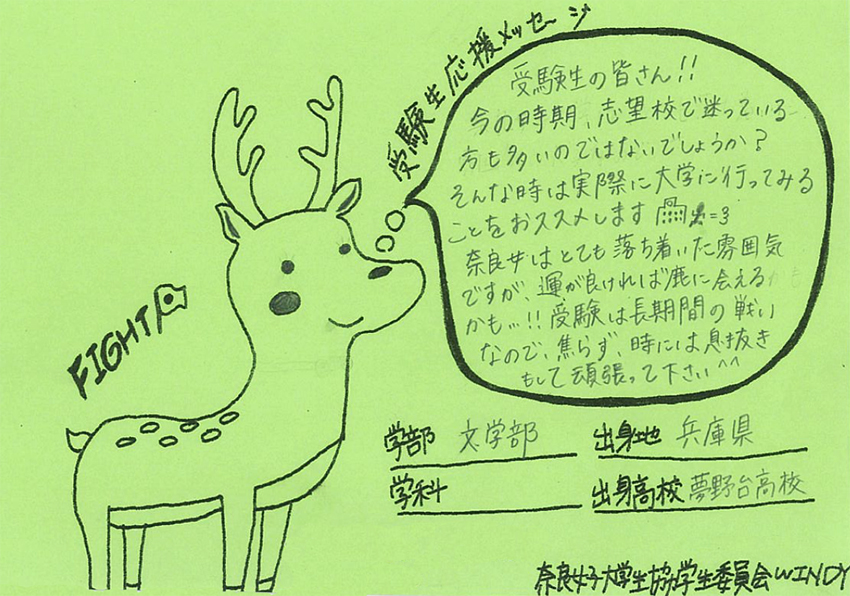 受験生応援メッセージ
受験生の皆さん!!
今の時期、志望校で迷っている
方も多いのではないでしょうか?
そんな時は実際に大学に行ってみる
ことをおススメします =3
奈良女はとても落ち着いた雰囲気
ですが、運が良ければ鹿に会える
かも…!!受験は長期間の戦い
なので、焦らず、時には息抜き
もして頑張って下さい^^
FIGHT
学部 文学部
出身地 兵庫県
学科
出身高校 夢野台高校
奈良女子大学生協学生委員会WINDY